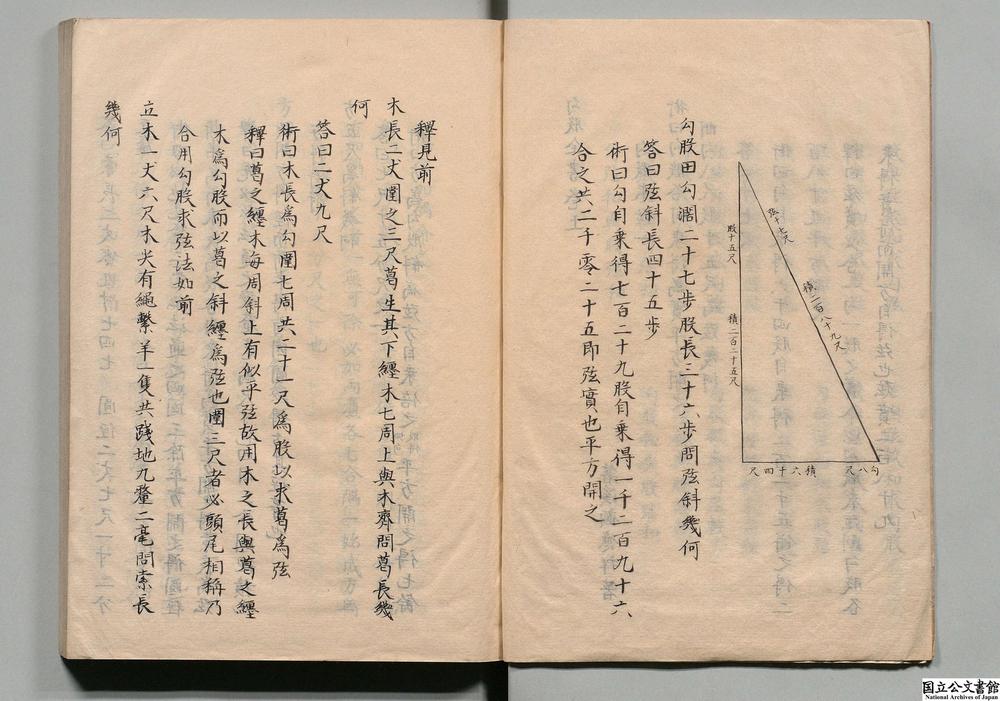 弦十七尺
積二百八十九尺
股十五尺
積二百二十五尺
勾八尺
積六十四尺
勾股田勾濶二十七步股長三十六步問弦斜幾何
答曰弦斜長四十五步
術曰勾自乗得七百二十九股自乗得一千二百九十六
合之共二千零二十五即弦實也平方開之
釋見前
木長二丈圍之三尺葛生其下纏木七周上與木齊問葛長幾
何
答曰二丈九尺
術曰木長爲勾圍七周共二十一尺爲股以求葛爲弦
釋曰葛之纏木每周斜上有似乎弦故用木之長與葛之纏
木爲勾股而以葛之斜纏爲弦也圍三尺者必頭尾相稱乃
合用勾股求弦法如前
立木一丈六尺木尖有繩繫羊一隻共踐地九釐二毫問索長
幾何
国立公文書館
National Archives of Japan